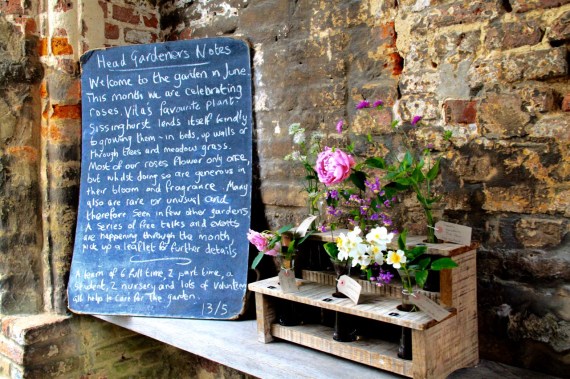 Head Gardeners Notes
Welcome to the garden in June.
This month we are celebrating
roses. Vita's favourite plant-
Sissinghurst lends itself kindly
to growing them - in beds, up walls or
through trees and meadow grass.
Most of our roses flower only once,
but whilst doing so are generous in
their bloom and fragrance. Many
also are rare or unusual and
therefore seen in few other gardens
A series of free talks and events
are happening through the month,
pick up a leaflet for further details
A team of 6 full time, 2 part time, a
student, 2 nursery and lots of Volunteers
all help to care for the garden.
13/5